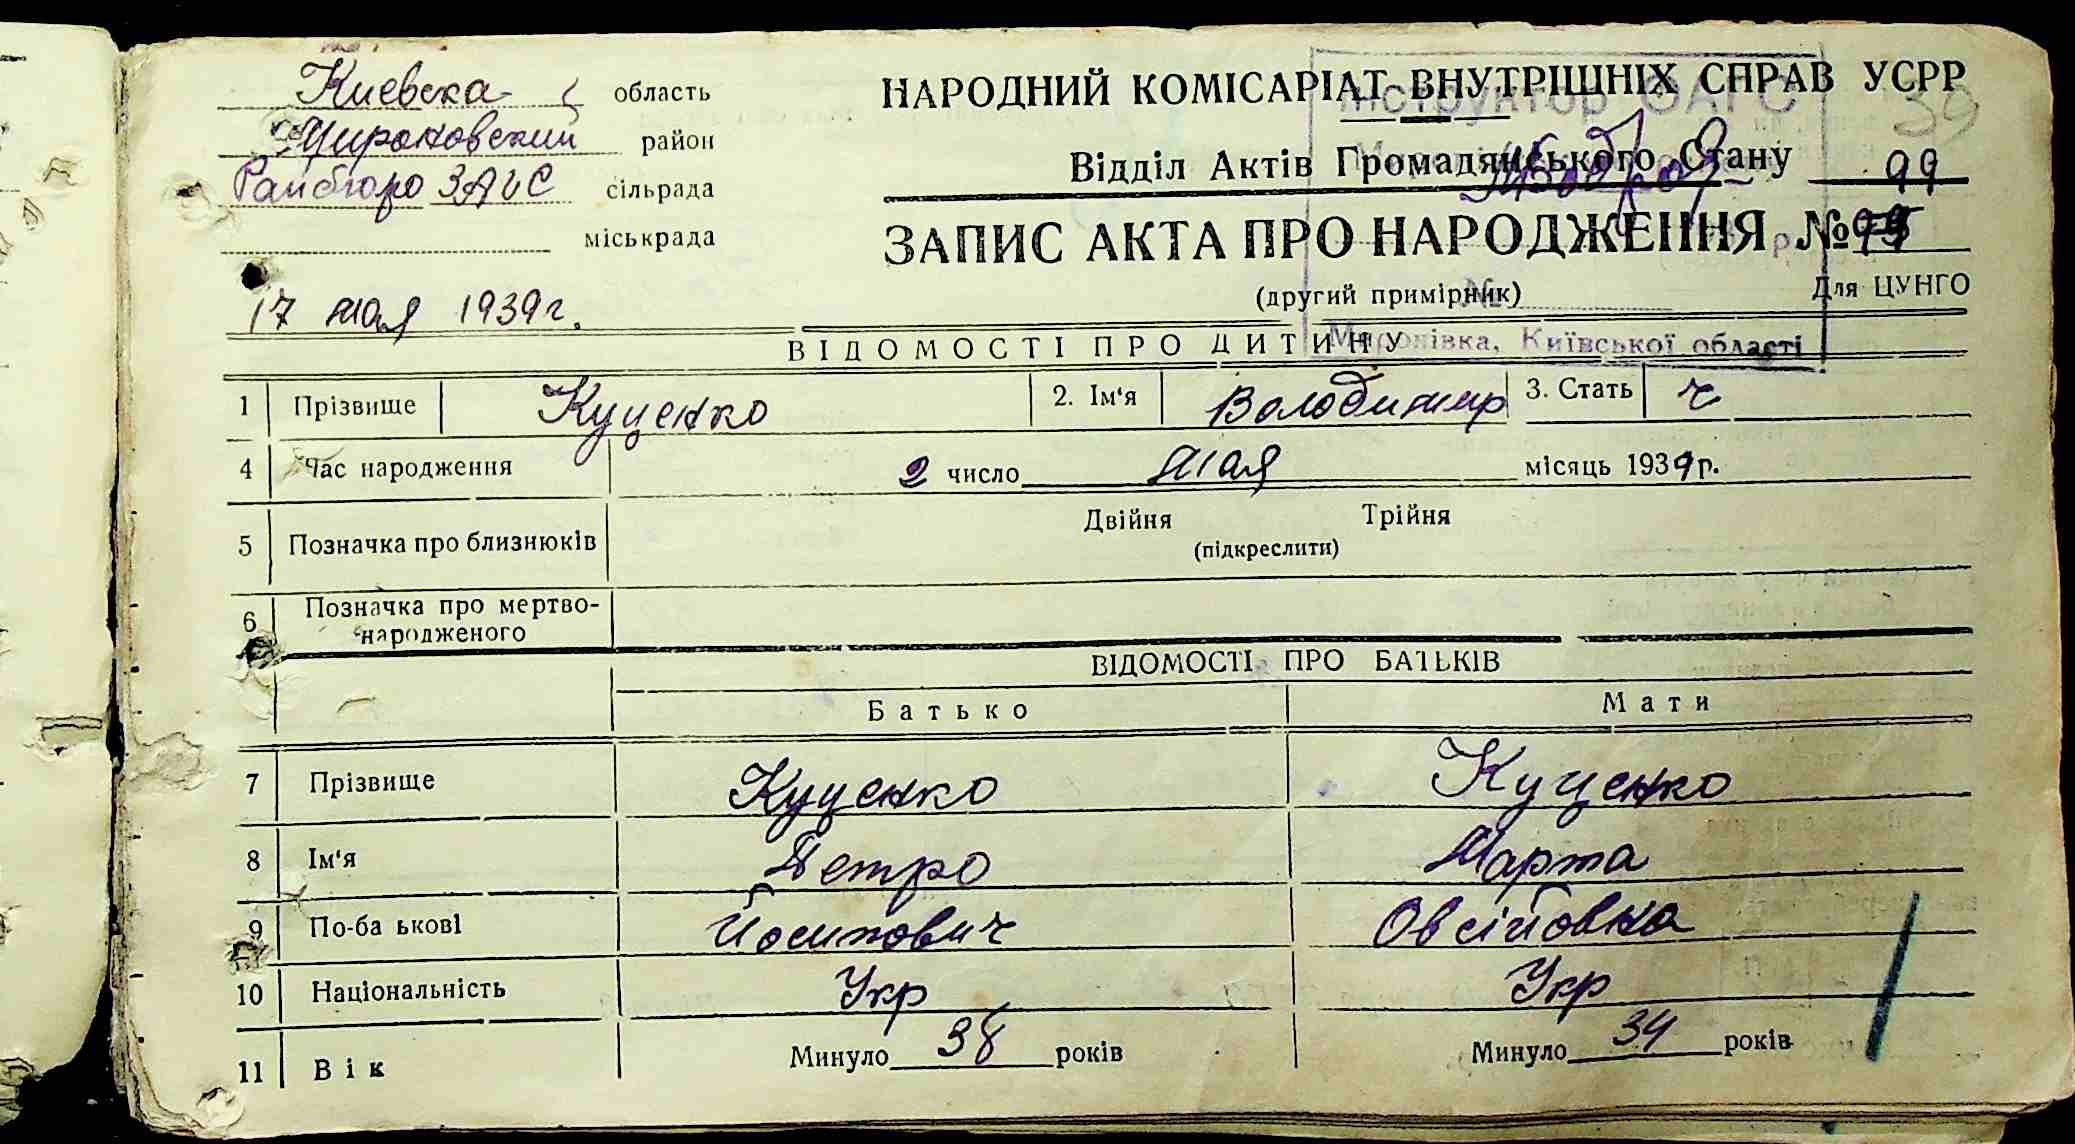 Киевска область
Мироновский район
Райбюро ЗАГС сільрада
міськрада
17 мая 1939 г.
НАРОДНИЙ КОМІСАРІАТ ВНУТРІШНІХ СПРАВ УСРР
39
Відділ Актів Громадянського Стану 99
ЗАПИС АКТА ПРО НАРОДЖЕННЯ №
(другий примірник) Для ЦУНГО
Інструктор ОАГС
№
Миронівка, Київської області
ВІДОМОСТІ ПРО ДИТИНУ
1 Прізвище Куценко 2. Ім'я Володимир 3. Стать ч
4 Час народження 2 число мая місяць 1939 р.
5 Позначка про близнюків Двійня Трійня
(підкреслити)
6 Позначка про мертво-
народженого
ВІДОМОСТІ ПРО БАТЬКІВ
Батько Мати
7 Прізвище Куценко Куценко
8 Ім'я Петро Марта
9 По-ба ькові Йосипович Овсіївна
10 Національність Укр Укр
11 Вік Минуло 38 років Минуло 34 років